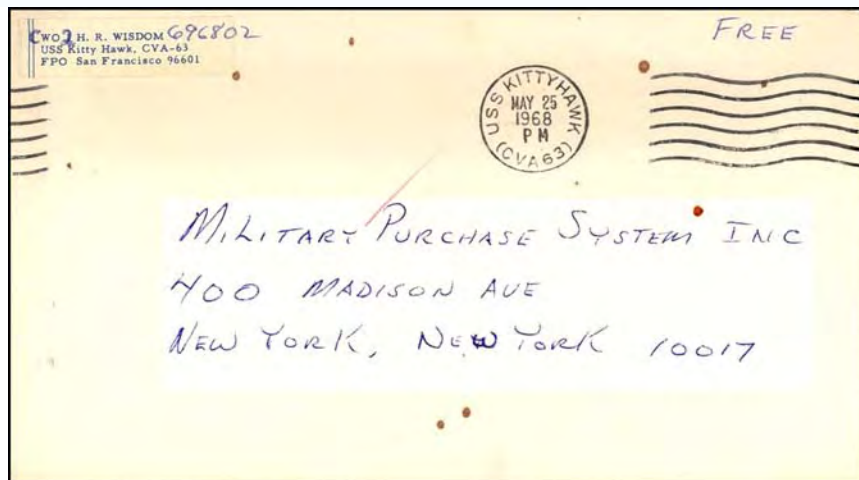 CWO2 H. R. WISDOM 696802
USS Kitty Hawk, CVA-63
FPO San Francisco 96601
FREE
USS KITTYHAWK
MAY 25
1968
PM
(CVA63)
MILITARY PURCHASE SYSTEM INC
400 MADISON AVE
NEW YORK, NEW YORK 10017